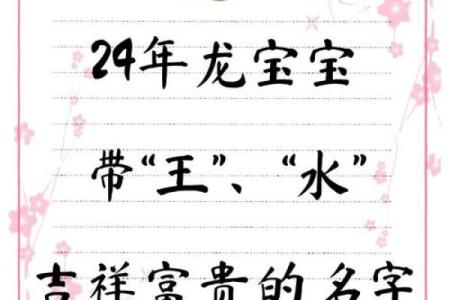 24年龙宝宝
带“王”、“水”
吉祥富贵的名字